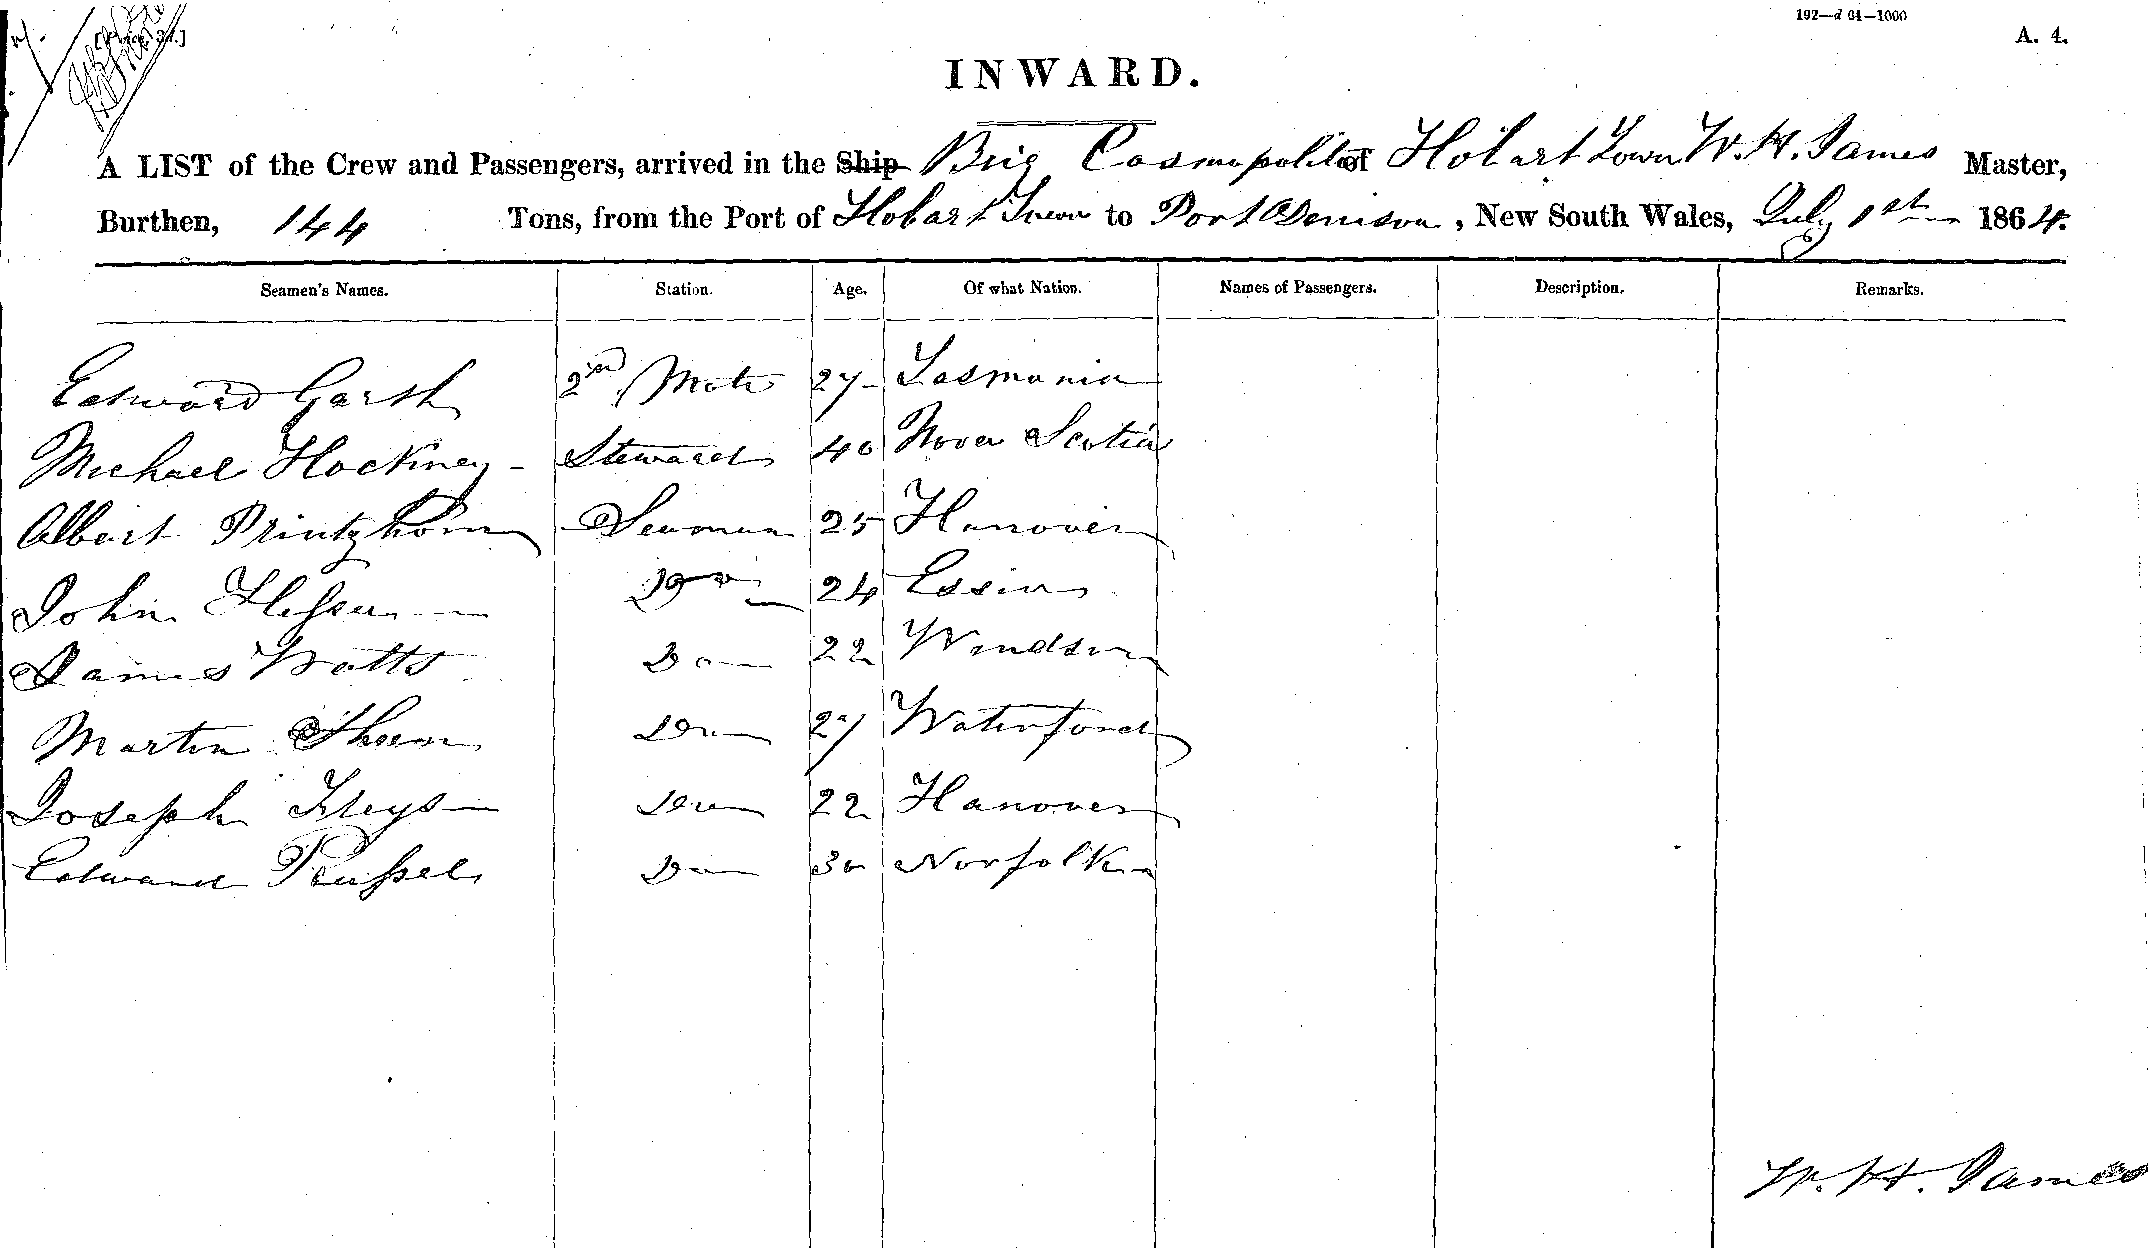 192—d 64—1000
[Price, 3d.]
A. 4.
INWARD.
A LIST of the Crew and Passengers, arrived in the Ship Brig Cosmopolite of Hobart Town W. H. James Master,
Burthen, 144 Tons, from the Port of Hobart Town to Port Denison, New South Wales, July 1st 1864.
Seamen's Names. Station. Age. Of what Nation. Names of Passengers. Description. Remarks.
Edward Garth 2nd Mate 27 Tasmania
Michael Hockney Steward 40 Nova Scotia
Albert Printzhorn Seaman 25 Hanover
John Do 24
James Watts Do 22 Windsor
Martin Do 27 Waterford
Joseph Do 22 Hanover
Edward Do 30 Norfolk
W. H. James